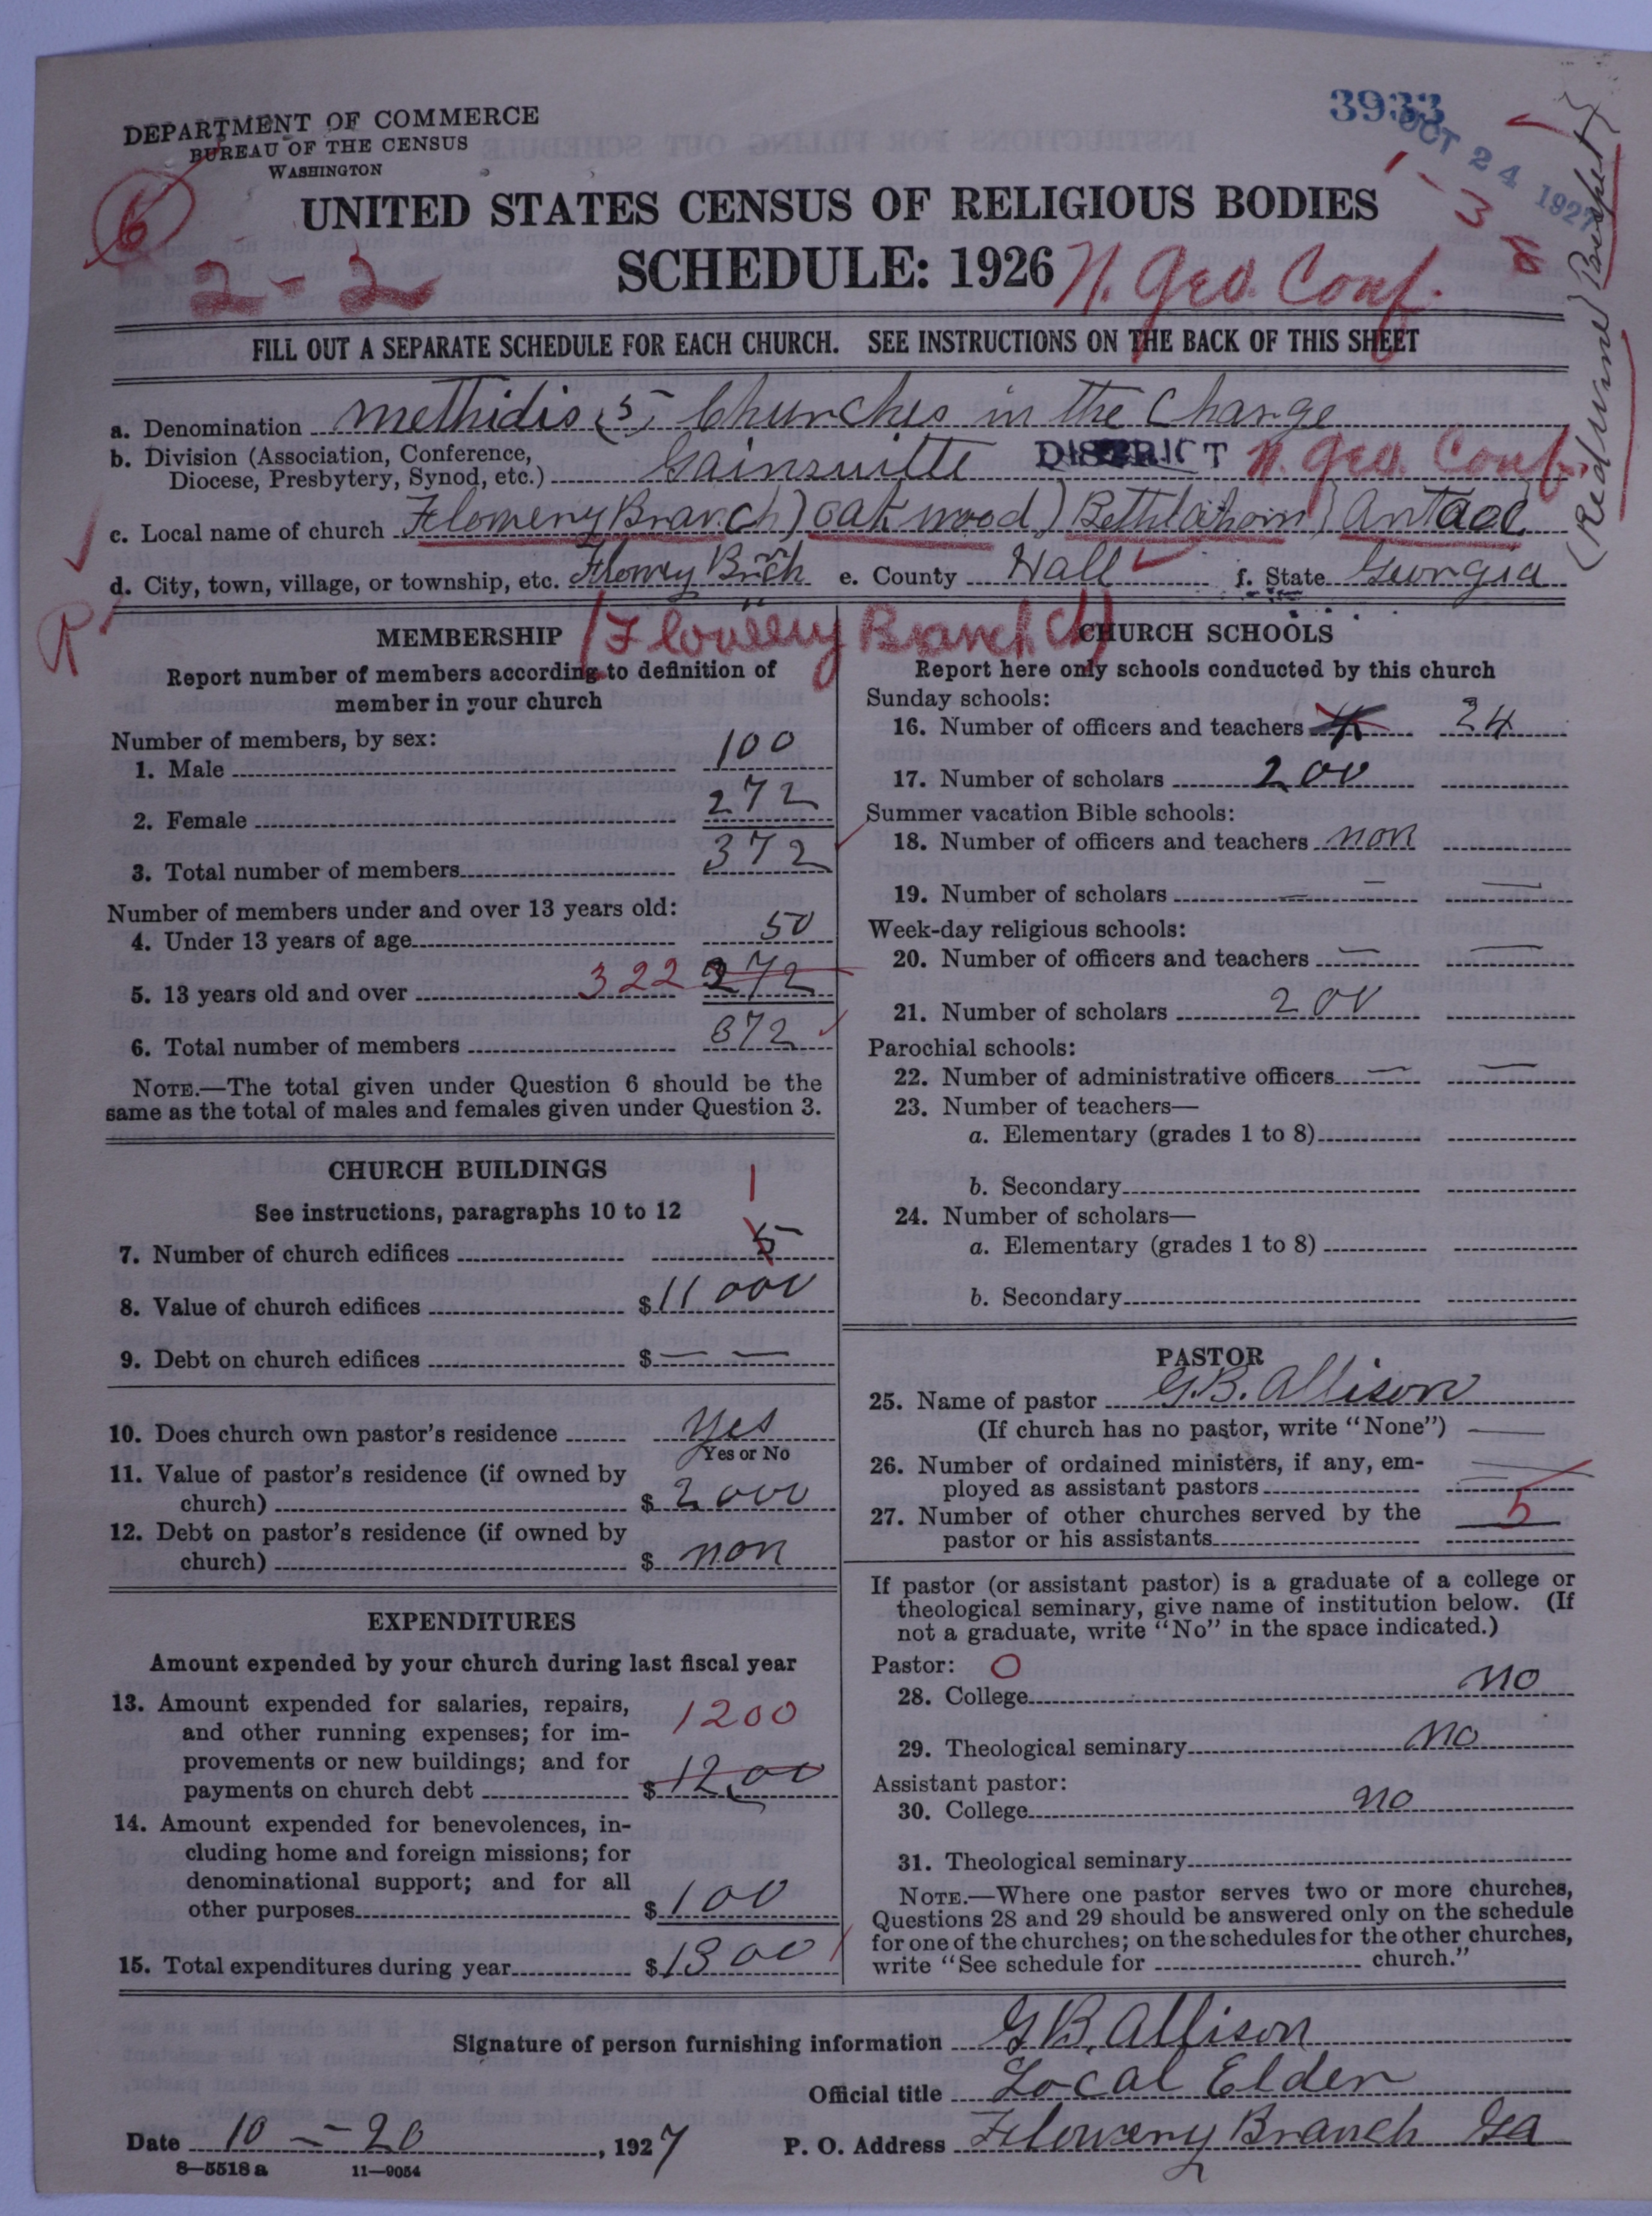 3933
OCT 24 1927
DEPARTMENT OF COMMERCE
BUREAU OF THE CENSUS
WASHINGTON
6
1-38
UNITED STATES CENSUS OF RELIGIOUS BODIES
2-2
SCHEDULE: 1926 N. Geo. Conf.
FILL OUT A SEPARATE SCHEDULE FOR EACH CHURCH. SEE INSTRUCTIONS ON THE BACK OF THIS SHEET
a. Denomination methidis (5 Churches in the Charge
b. Division (Association, Conference,
Diocese, Presbytery, Synod, etc.) Gainsvitte DISTRICT N. Geo. Conf.
c. Local name of church Flowery Branch) oak wood)
(Redwine)
d. City, town, village, or township, etc. Flowry Brch e. County Hall f. State Georgia
R
(Flowery Branch Ch)
MEMBERSHIP
Report number of members according to definition of
member in your church
Number of members, by sex:
1. Male 100
2. Female 272
3. Total number of members 372
Number of members under and over 13 years old:
4. Under 13 years of age 50
5. 13 years old and over 322 272
6. Total number of members 372
NOTE.—The total given under Question 6 should be the
same as the total of males and females given under Question 3.
CHURCH BUILDINGS
See instructions, paragraphs 10 to 12
1
7. Number of church edifices 5
8. Value of church edifices $11000
9. Debt on church edifices $— —
10. Does church own pastor's residence yes
Yes or No
11. Value of pastor's residence (if owned by
church) $ 2000
12. Debt on pastor's residence (if owned by
church) $ non
EXPENDITURES
Amount expended by your church during last fiscal year
13. Amount expended for salaries, repairs,
and other running expenses; for im- 1200
provements or new buildings; and for
payments on church debt $1200
14. Amount expended for benevolences, in-
cluding home and foreign missions; for
denominational support; and for all
other purposes $100
15. Total expenditures during year $1300
CHURCH SCHOOLS
Report here only schools conducted by this church
Sunday schools:
16. Number of officers and teachers 4 24
17. Number of scholars 200
Summer vacation Bible schools:
18. Number of officers and teachers non
19. Number of scholars — — —
Week-day religious schools:
20. Number of officers and teachers — —
21. Number of scholars 200
Parochial schools:
22. Number of administrative officers — —
23. Number of teachers—
a. Elementary (grades 1 to 8)
b. Secondary
24. Number of scholars—
a. Elementary (grades 1 to 8)
b. Secondary
PASTOR
25. Name of pastor G.B. Allison
(If church has no pastor, write "None") —
26. Number of ordained ministers, if any, em-
ployed as assistant pastors
27. Number of other churches served by the 5
pastor or his assistants
If pastor (or assistant pastor) is a graduate of a college or
theological seminary, give name of institution below. (If
not a graduate, write "No" in the space indicated.)
Pastor: O
28. College no
29. Theological seminary no
Assistant pastor:
30. College no
31. Theological seminary
NOTE.—Where one pastor serves two or more churches,
Questions 28 and 29 should be answered only on the schedule
for one of the churches; on the schedules for the other churches,
write "See schedule for church."
Signature of person furnishing information G B. Allison
Official title Local Elder
Date 10 — 20, 1927 P. O. Address Flowery Branch Ga
8—5518 a 11—9054